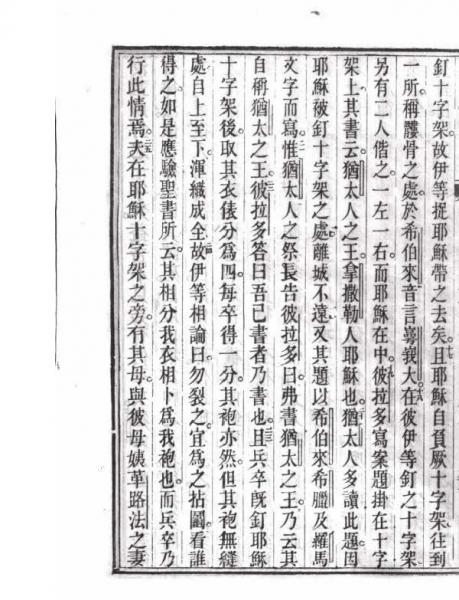 釘十字架故伊等捉耶穌帶之去矣。且耶穌自負厥十字架往到
一所稱髏骨之處於希伯來音言我大。在彼伊等釘之十字架
另有二人偕之。一左一右而耶穌在中。彼拉多寫案題掛在十字
架上其書云猶太人之王拿撒勒人耶穌也。猶太人多讀此題因
耶穌被釘十字架之處離城不遠又其題以希伯來希臘及羅馬
文字而寫惟猶太人之祭長告彼拉多曰弗書猶太之王乃云其
自稱猶太之王。彼拉多答曰吾已書者乃書也。且兵卒既釘耶穌
十字架後取其衣後分為四每卒得一分其袍亦然但其袍無縫
處自上至下渾織成全故伊等相論曰勿裂之宜為之拈鬮看誰
得之如是應驗聖書所云其相分我衣相卜為我袍也而兵卒乃
行此情焉夫在耶穌十字架之旁有其母與彼母姨革路法之妻